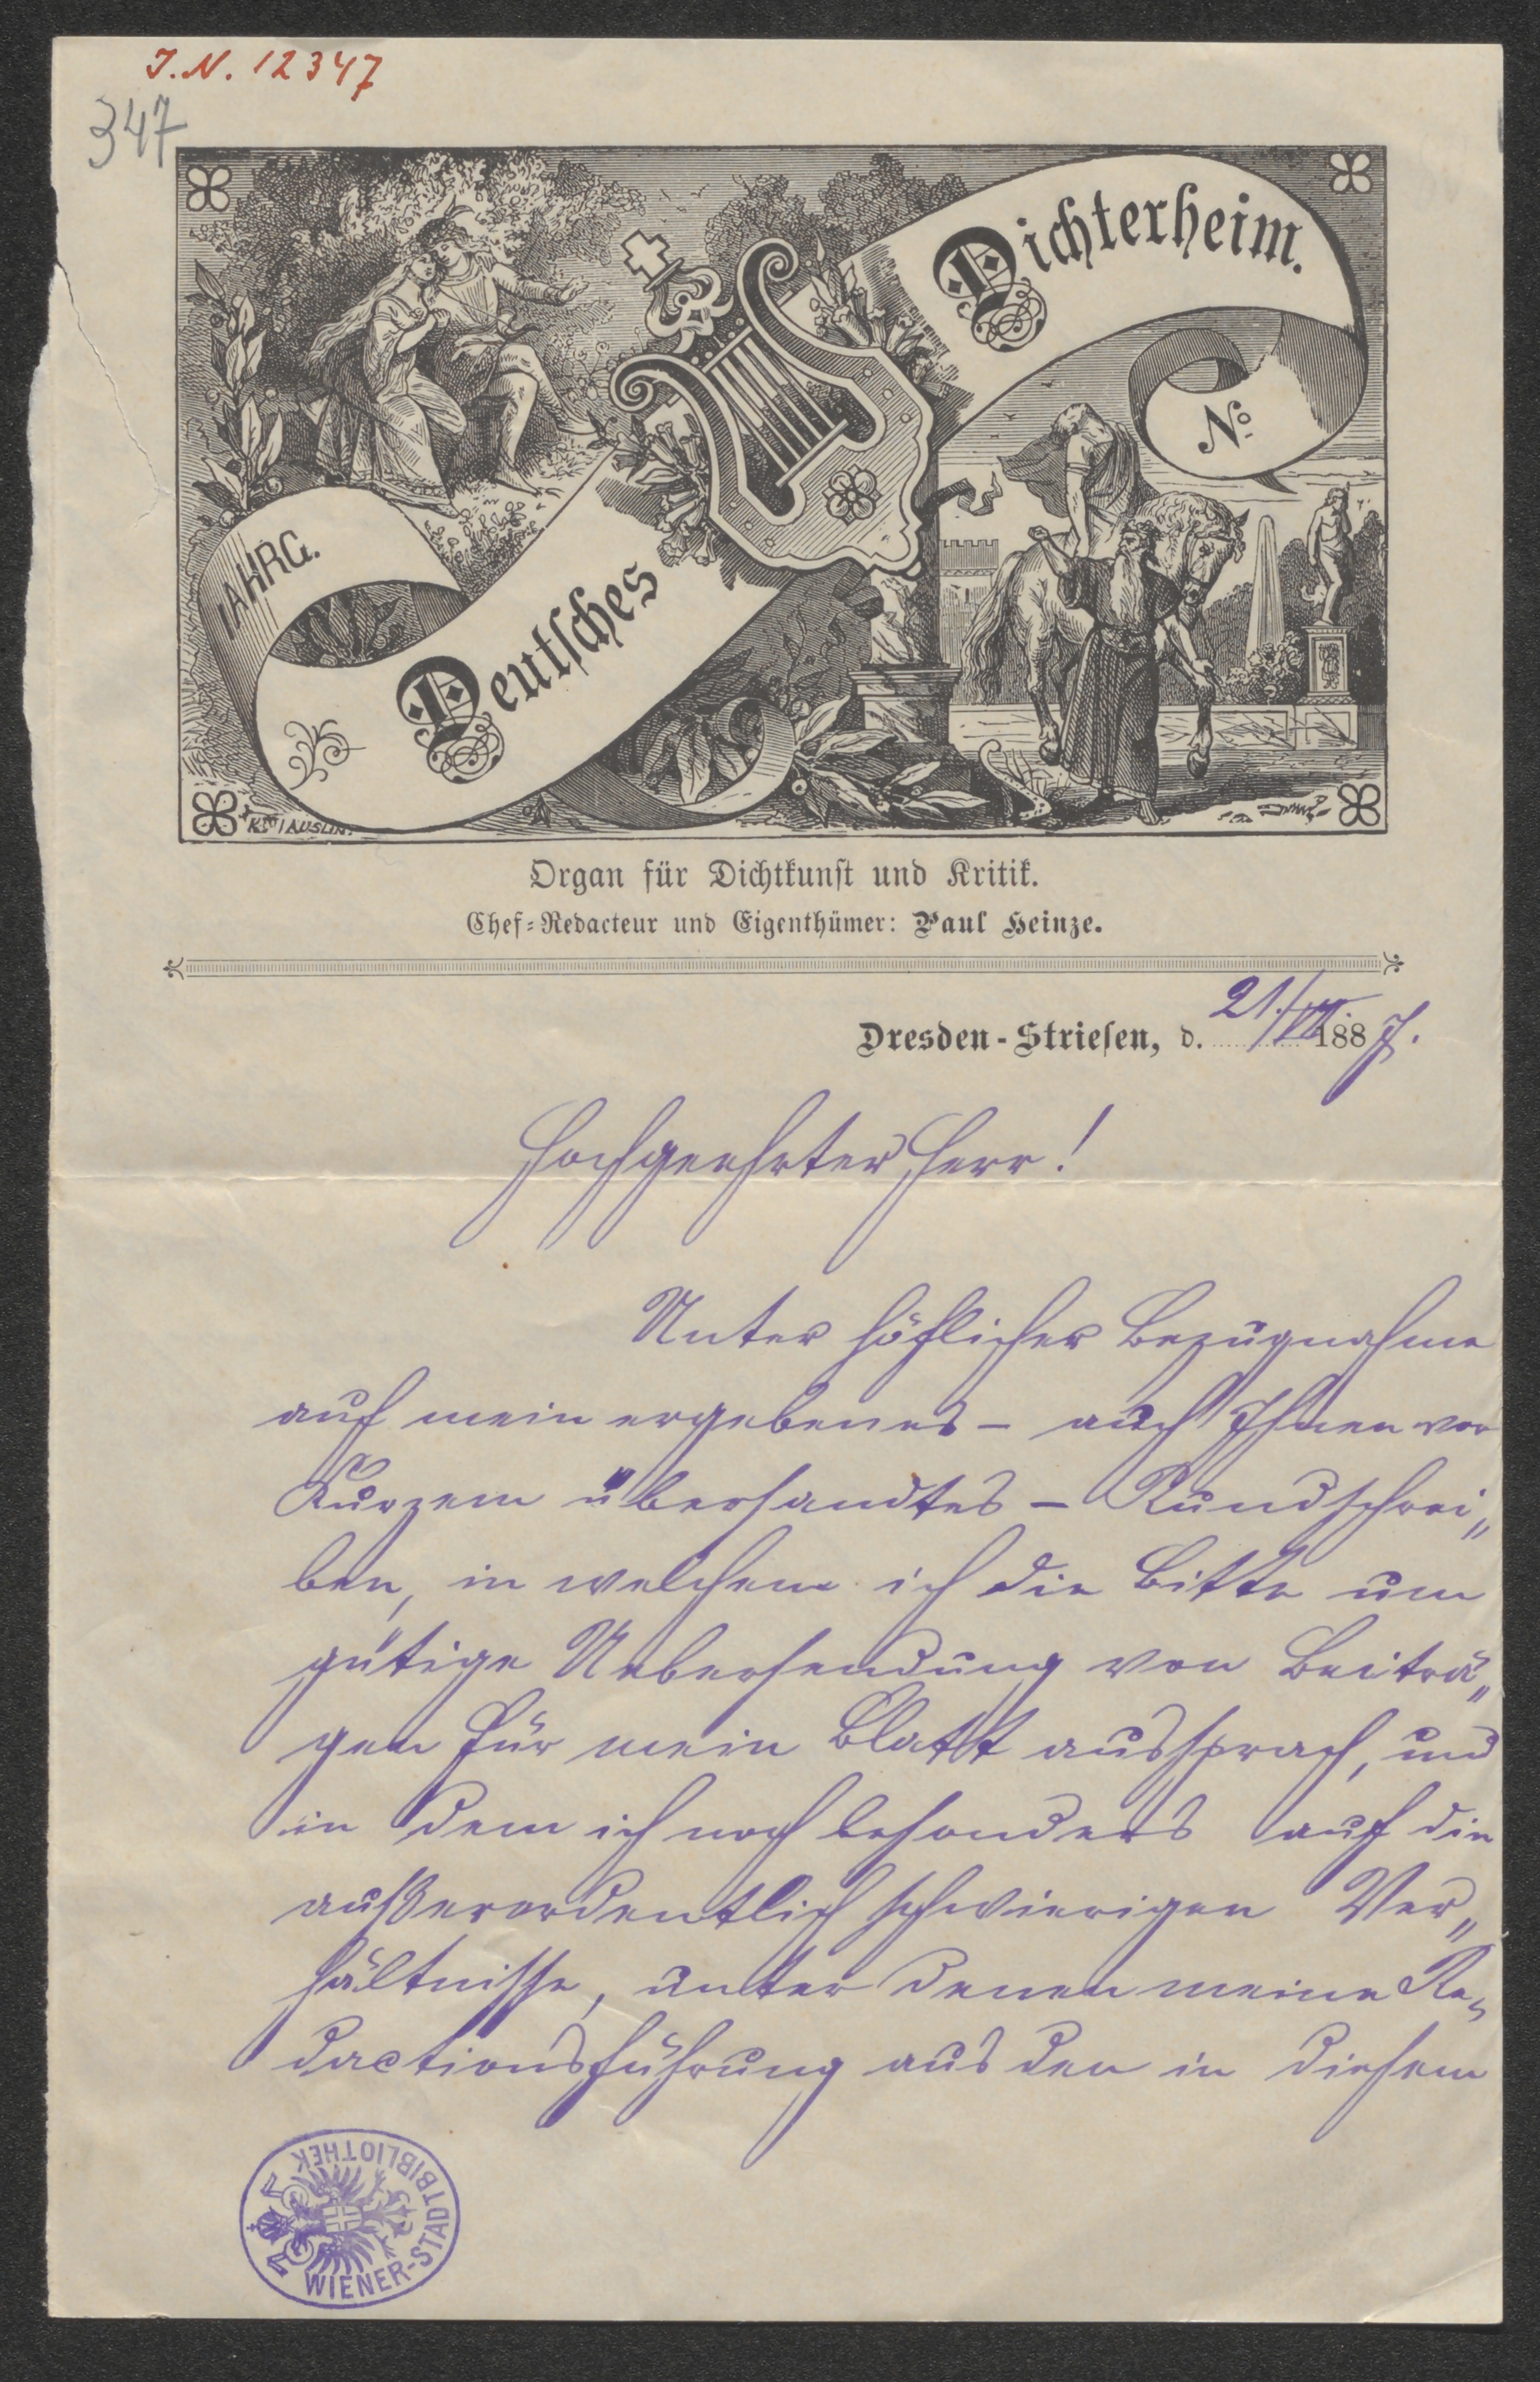 J.N. 12347
347
Dichterheim.
No.
JAHRG.
Deutsches
Organ für Dichtkunst und Kritik.
Chef-Redacteur und Eigenthümer: Paul Heinze.
Dresden-Striesen, d. 21./VII. 1887.
Hochgeehrter Herr!
Unter höflicher Bezugnahme
auf mein ergebenes – auch Ihnen vor
Kurzem übersandtes – Rundschrei„
ben, in welchem ich die Bitte um
gütige Uebersendung von Beiträ„
gen für mein Blatt aussprach, und
in dem ich noch besonders auf die
außerordentlich schwierigen Ver„
hältnisse, unter denen meine Re„
dactionsführung aus den in diesem
WIENER-STADTBIBLIOTHEK